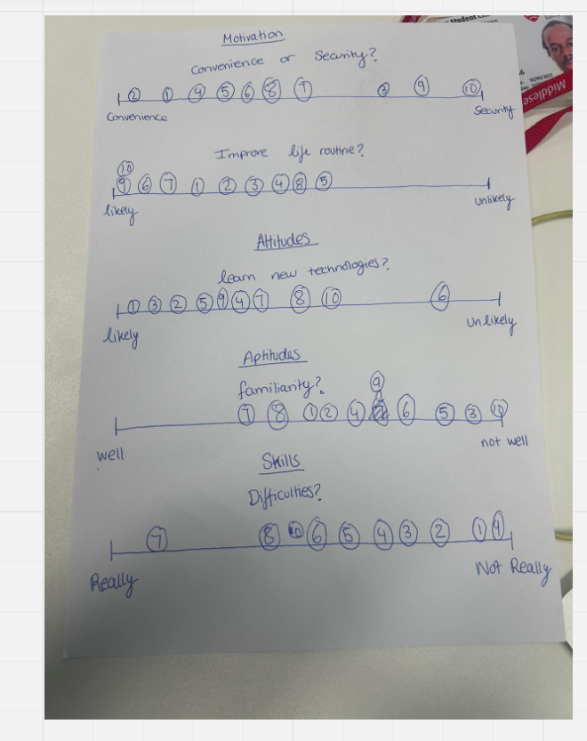 Motivation
Convenience or Security?
2 1 4 5 6 8 7 3 9 10
Convenience Security
Improve life routine?
10
9 6 7 1 2 3 4 8 5
likely unlikely
Attitudes
learn new technologies?
1 3 2 5 9 4 7 8 10 6
likely unlikely
Aptitudes
familiarity?
9
7 8 1 2 4 6 5 3 10
well not well
Skills
Difficulties?
7 8 10 6 5 4 3 2 1 9
Really Not Really
Student
Middlesex